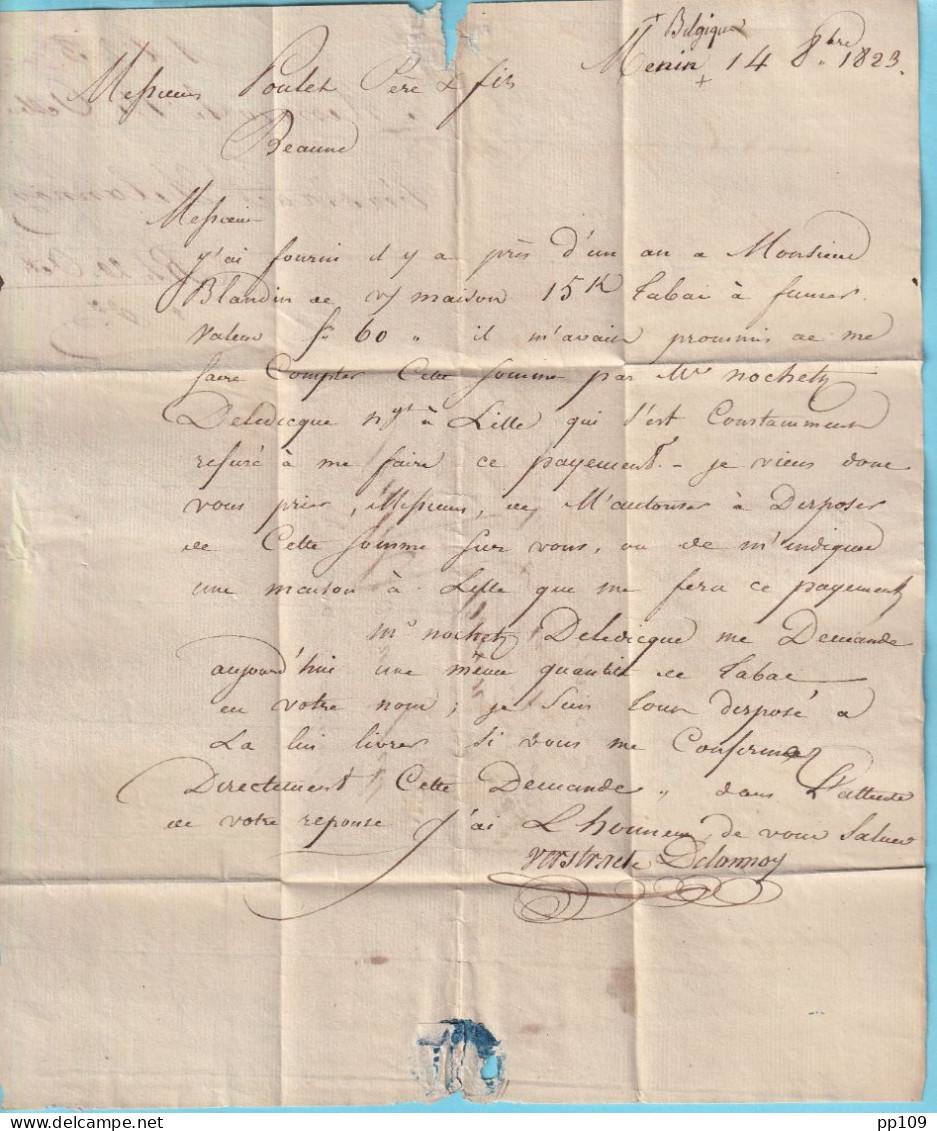 Belgique
Menin 14 8bre 1823.
Messieurs Poulet Père & fils
Beaune
Messieurs
J'ai fourni il y a près d'un an a Monsieur
Blandin de v/ maison 15K tabac à fumer.
Valeur fr 60 " il m'avait prommis de me
faire Compter Cette somme par Mr nochetz
Deledicque ngt à Lille qui s'est Constamment
refusé à me faire ce payement. - je viens donc
vous prier, Messieurs, de M'autoriser à Disposer
de Cette somme sur vous, ou de m'indiquer
une maison à Lille que me fera ce payement
Mr nochetz Deledicque me Demande
aujourd'hui une même quantité de tabac
en votre nom; je suis tout disposé a
La lui livrer si vous me Confirmez
Directement Cette Demande " dans L'attente
de votre reponse J'ai L'honneur de vous Saluer
Verstraete Delannoy
pp109